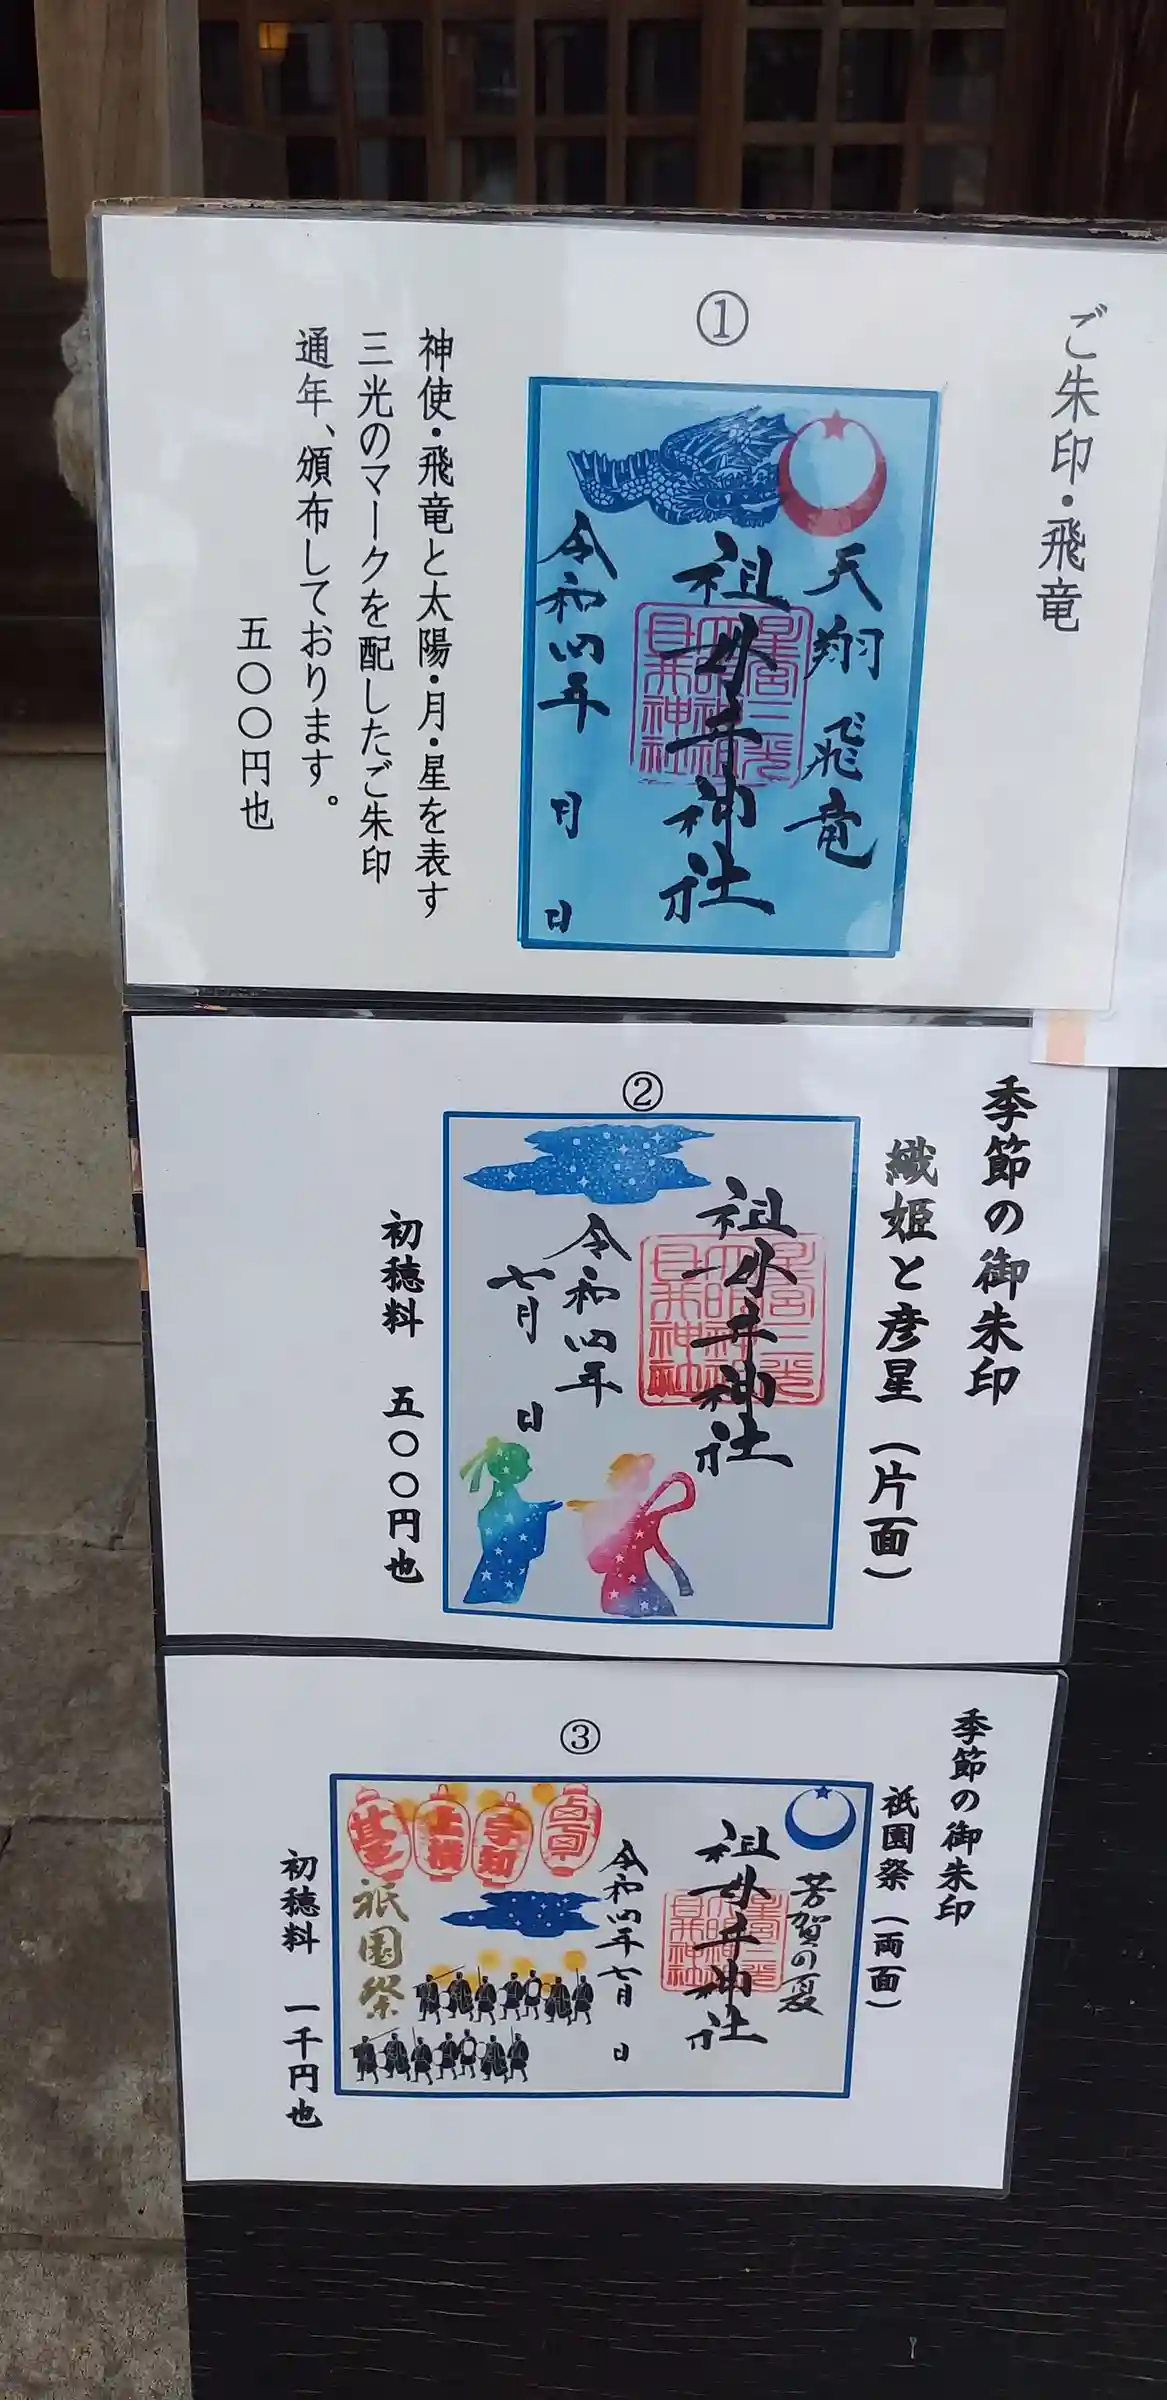 ご朱印・飛竜
①
天翔飛竜
祖母井神社
令和四年 月 日
神使・飛竜と太陽・月・星を表す
三光のマークを配したご朱印
通年、頒布しております。
五〇〇円也
季節の御朱印
織姫と彦星（片面）
②
祖母井神社
令和四年
七月 日
初穂料 五〇〇円也
季節の御朱印
祇園祭（両面）
③
芳賀の夏
祖母井神社
令和四年七月 日
祇園祭
初穂料 一千円也